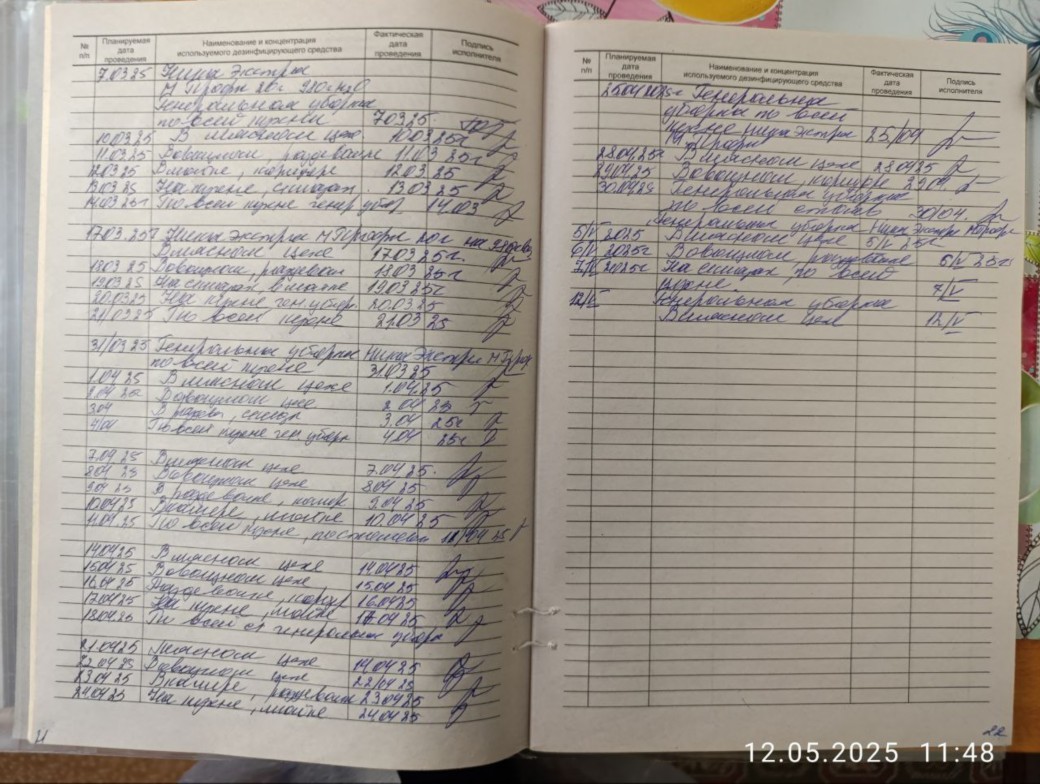 № п/п Планируемая дата проведения Наименование и концентрация используемого дезинфицирующего средства Фактическая дата проведения Подпись исполнителя
7.03.25 Ника Экстра
М Профи 20г
Генеральная уборка
по всей кухни 7.03.25.
10.03.25 В мясном цехе 10.03.25г
11.03.25 В овощном, раздевалке 11.03.25г
12.03.25 В мойке, коридоре 12.03.25
13.03.25 На кухне, 13.03.25
14.03.25г По всей кухне генер убор. 14.03
17.03.25г Ника Экстра М Профи 20г на
В мясном цехе 17.03.25г.
18.03.25 В овощном, раздевалке 18.03.25г
19.03.25 На складах в мойке 19.03.25г
20.03.25 На кухне ген. убор. 20.03.25
21/03.25 По всей кухне 21.03.25
31/03.25 Генеральная уборка Ника Экстра М Профи
по всей кухне 31.03.25
1.04.25 В мясном цехе 1.04.25
2.04.25 В овощном цехе 2.04.25
3.04 В 3.04.25г
4/04 По всей кухне ген уборка 4.04 25г
7.04.25 В мясном цехе 7.04.25.
8.04.25 В овощном цехе 8.04.25
9.04.25 В раздевалке, 9.04.25
10.04.25 мойке 10.04.25
11.04.25 По всей кухне, 11/04.25
14.04.25 В мясном цехе 14.04.25
15.04.25 В овощном цехе 15.04.25
16.04.25 Раздевалке, 16.04.25
17.04.25 На кухне, мойке 17.04.25
18.04.25 По всей генеральная уборка
21.04.25 Мясном цехе
22.04.25 В овощном цехе 22/04.25
23.04.25 раздевалке 23.04.25
24.04.25 На кухне, мойке 24.04.25
21
№ п/п Планируемая дата проведения Наименование и концентрация используемого дезинфицирующего средства Фактическая дата проведения Подпись исполнителя
25.04 Генеральная
уборка по всей
кухне Ника Экстра 25/04
М Профи
28.04.25г В мясном цехе 28.04.25
29.04.25 В овощном, коридоре 29.04.
30.04.25 Генеральная уборка
по всей 30/04.
Генеральная уборка Ника Экстра М Профи
5/V 2025 В мясном цехе 5/V 25г
6/V 2025г В овощном, раздевалке 6/V 25г
7/V 2025г На складах по всей
кухне. 7/V
12/V Генеральная уборка
В мясном цехе 12/V
22
12.05.2025 11:48